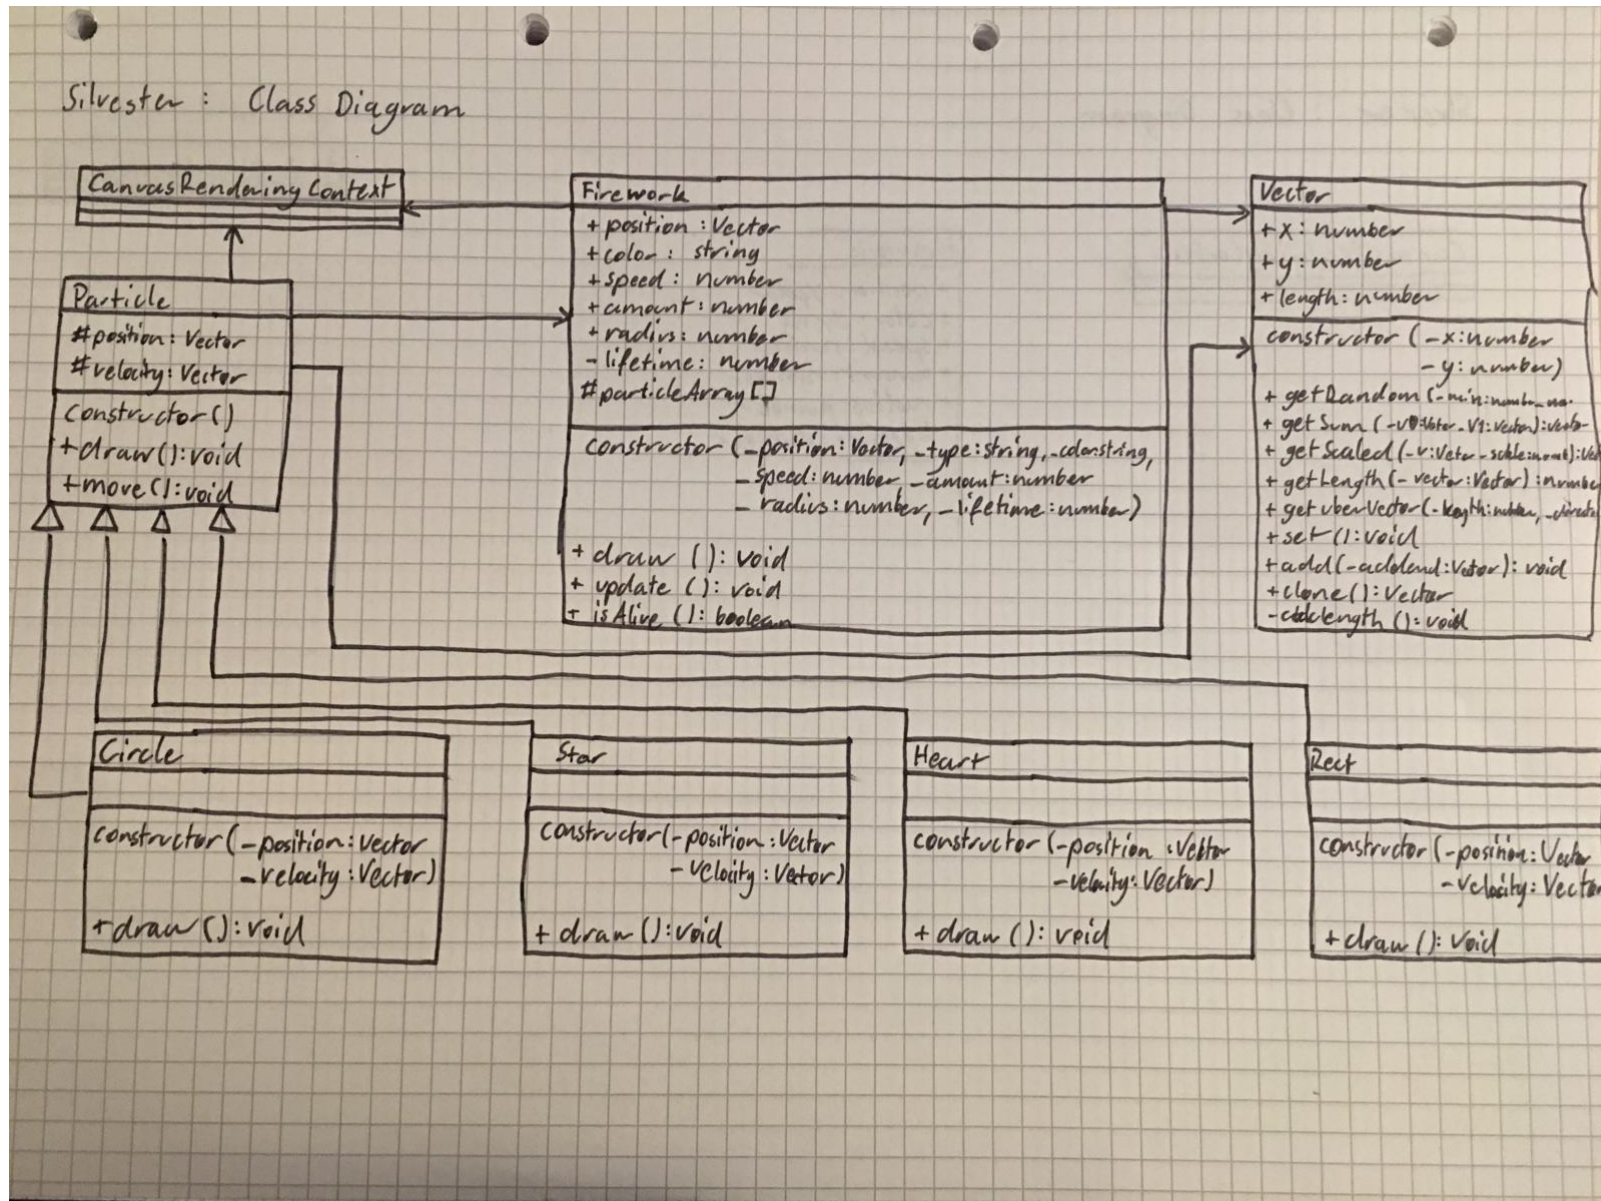 Silvester : Class Diagram
CanvasRenderingContext
Particle
#position: Vector
#velocity: Vector
constructor()
+draw(): void
+move(): void
Firework
+position: Vector
+color: string
+speed: number
+amount: number
+radius: number
-lifetime: number
#particleArray[]
constructor (_position: Vector, _type: string, _color:string,
_speed: number, _amount: number
_radius: number, _lifetime: number)
+ draw (): void
+ update (): void
+ isAlive (): boolean
Vector
+x: number
+y: number
+ length: number
constructor (_x: number
_y: number)
+ getRandom (_min: number,
+ getSum (_v0: Vector _v1: Vector): Vector
+ getScaled (_v: Vector _scale: number):
+ getLength (_vector: Vector): number
+ get Vector (_length: number,
+ set (): void
+add(_addend: Vector): void
+clone(): Vector
(): void
Circle
constructor (_position: Vector
_velocity: Vector)
+draw (): void
Star
constructor(_position: Vector
_velocity: Vector)
+ draw (): void
Heart
constructor (_position : Vector
_velocity: Vector)
+ draw (): void
Rect
constructor (_position: Vector
_velocity: Vector
+draw (): void